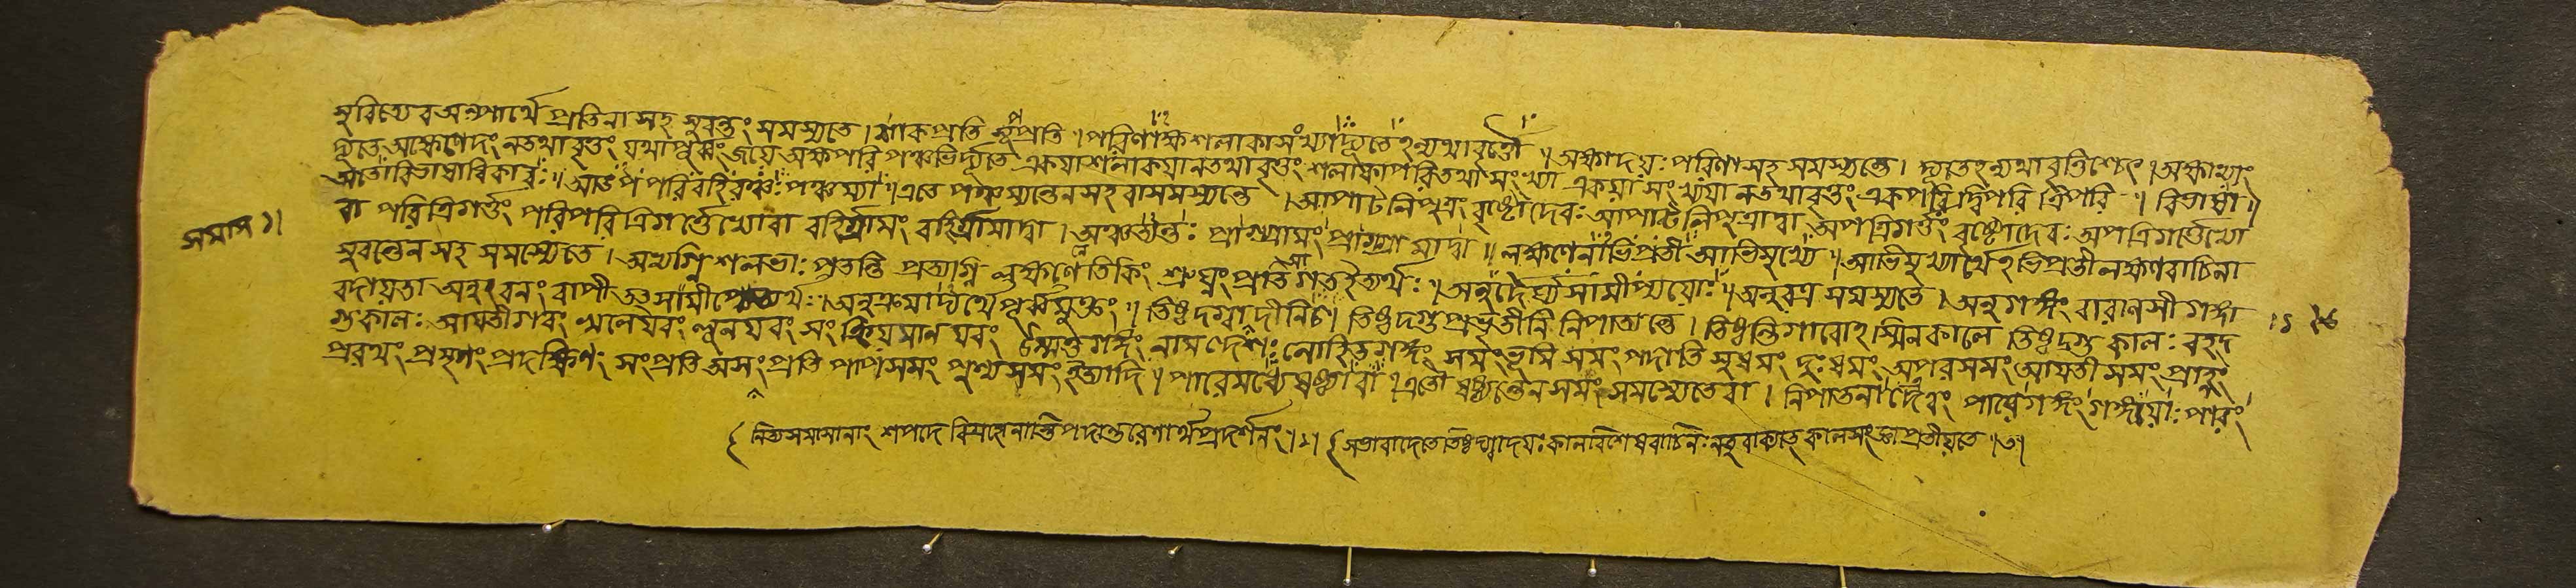 সুবিত্যেব অল্পার্থে প্রতিনা সহ সুবন্তং সমস্যতে। শাকপ্রতি সূপপ্রতি॥ পরিণাক্ষশলাকাসংখ্যাদ্যূতেঽন্যথাবৃত্তৌ॥ অক্ষাদয়ঃ পরিণা সহ সমস্যন্তে। দ্যূতেঽন্যথাবৃত্তিশ্চেৎ। অক্ষাখ্যং
দ্যূতে অক্ষেণেদং ন তথাবৃত্তং যথা পূর্ব্বং জয়ে অক্ষপরি পঞ্চভির্দ্যূতে একয়া শলাকয়া ন তথাবৃত্তং শলাকাপরি তথা সংখ্যা একয়া সংখ্যয়া ন তথাবৃত্তং একপরি দ্বিপরি ত্রিপরি॥ বিভাষা॥
অতো বিভাষাধিকারঃ॥ আঙপপরিবহিরঞ্চঃ পঞ্চম্যা॥ এতে পঞ্চম্যন্তেন সহ বা সমস্যন্তে। আপাটলিপুত্রং বৃষ্টো দেবঃ আপাটলিপুত্রাদ্বা অপত্রিগর্ত্তং বৃষ্টোদেবঃ অপত্রিগর্ত্তেভ্যো
বা পরিত্রিগর্ত্তং পরিপরিত্রিগর্ত্তেভ্যো বা বহির্গ্রামং বহির্গ্রামাদ্বা। অঞ্চত্যন্তঃ প্রাগ্গ্রামং প্রাগ্গ্রামাদ্বা॥ লক্ষণেনাভিপ্রতী আভিমুখ্যে॥ আভিমুখ্যার্থেঽভিপ্রতী লক্ষণবাচিনা
সমাস ১।
সুবন্তেন সহ সমস্যেতে। অভ্যগ্নি শলভাঃ পতন্তি প্রত্যগ্নি লক্ষণেনেতি কিং শ্রুঘ্নং প্রতিগত ইত্যর্থঃ॥ অনুর্দৈর্ঘ্যসামীপ্যয়োঃ॥ অনুরত্র সমস্যতে। অনুগঙ্গং বারানসী গঙ্গা
বদায়তা অনুবনং বাপী তৎসামীপ্যেত্যর্থঃ। অনুক্রমাদ্যর্থে পূর্ব্বমুক্তং॥ তিষ্ঠদ্গ্বাদীনি চ॥ তিষ্ঠদ্গুপ্রভৃতীনি নিপাত্যন্তে। তিষ্ঠন্তি গাবোঽস্মিন কালে তিষ্ঠদ্গু কালঃ বহদ্
গুকালঃ আয়তীগবং খলেযবং লূনযবং সংহ্রিয়মানযবং উন্মত্তগঙ্গং নাম দেশঃ লোহিতগঙ্গং সমংভূমি সমংপদাতি সুষমং দুঃষমং অপরসমং আয়তীসমং প্রাহ্ণং
প্ররথং প্রমৃগং প্রদক্ষিণং সংপ্রতি অসংপ্রতি পাপসমং পুণ্যসমং ইত্যাদি॥ পারেমধ্যে ষষ্ঠ্যা বা॥ এতৌ ষষ্ঠ্যন্তেন সমং সমস্যেতে বা। নিপাতনাদেত্বং পারেগঙ্গং গঙ্গায়াঃ পারং
নিত্যসমাসানাং স্বপদে বিগ্রহো নাস্তি পদান্তরেণার্থপ্রদর্শনং।১। অভাবাদেতে তিষ্ঠদ্গ্বাদয়ঃ কালবিশেষবাচিনঃ নতু বাক্যাৎ কালসংজ্ঞা প্রতীয়তে।৩।